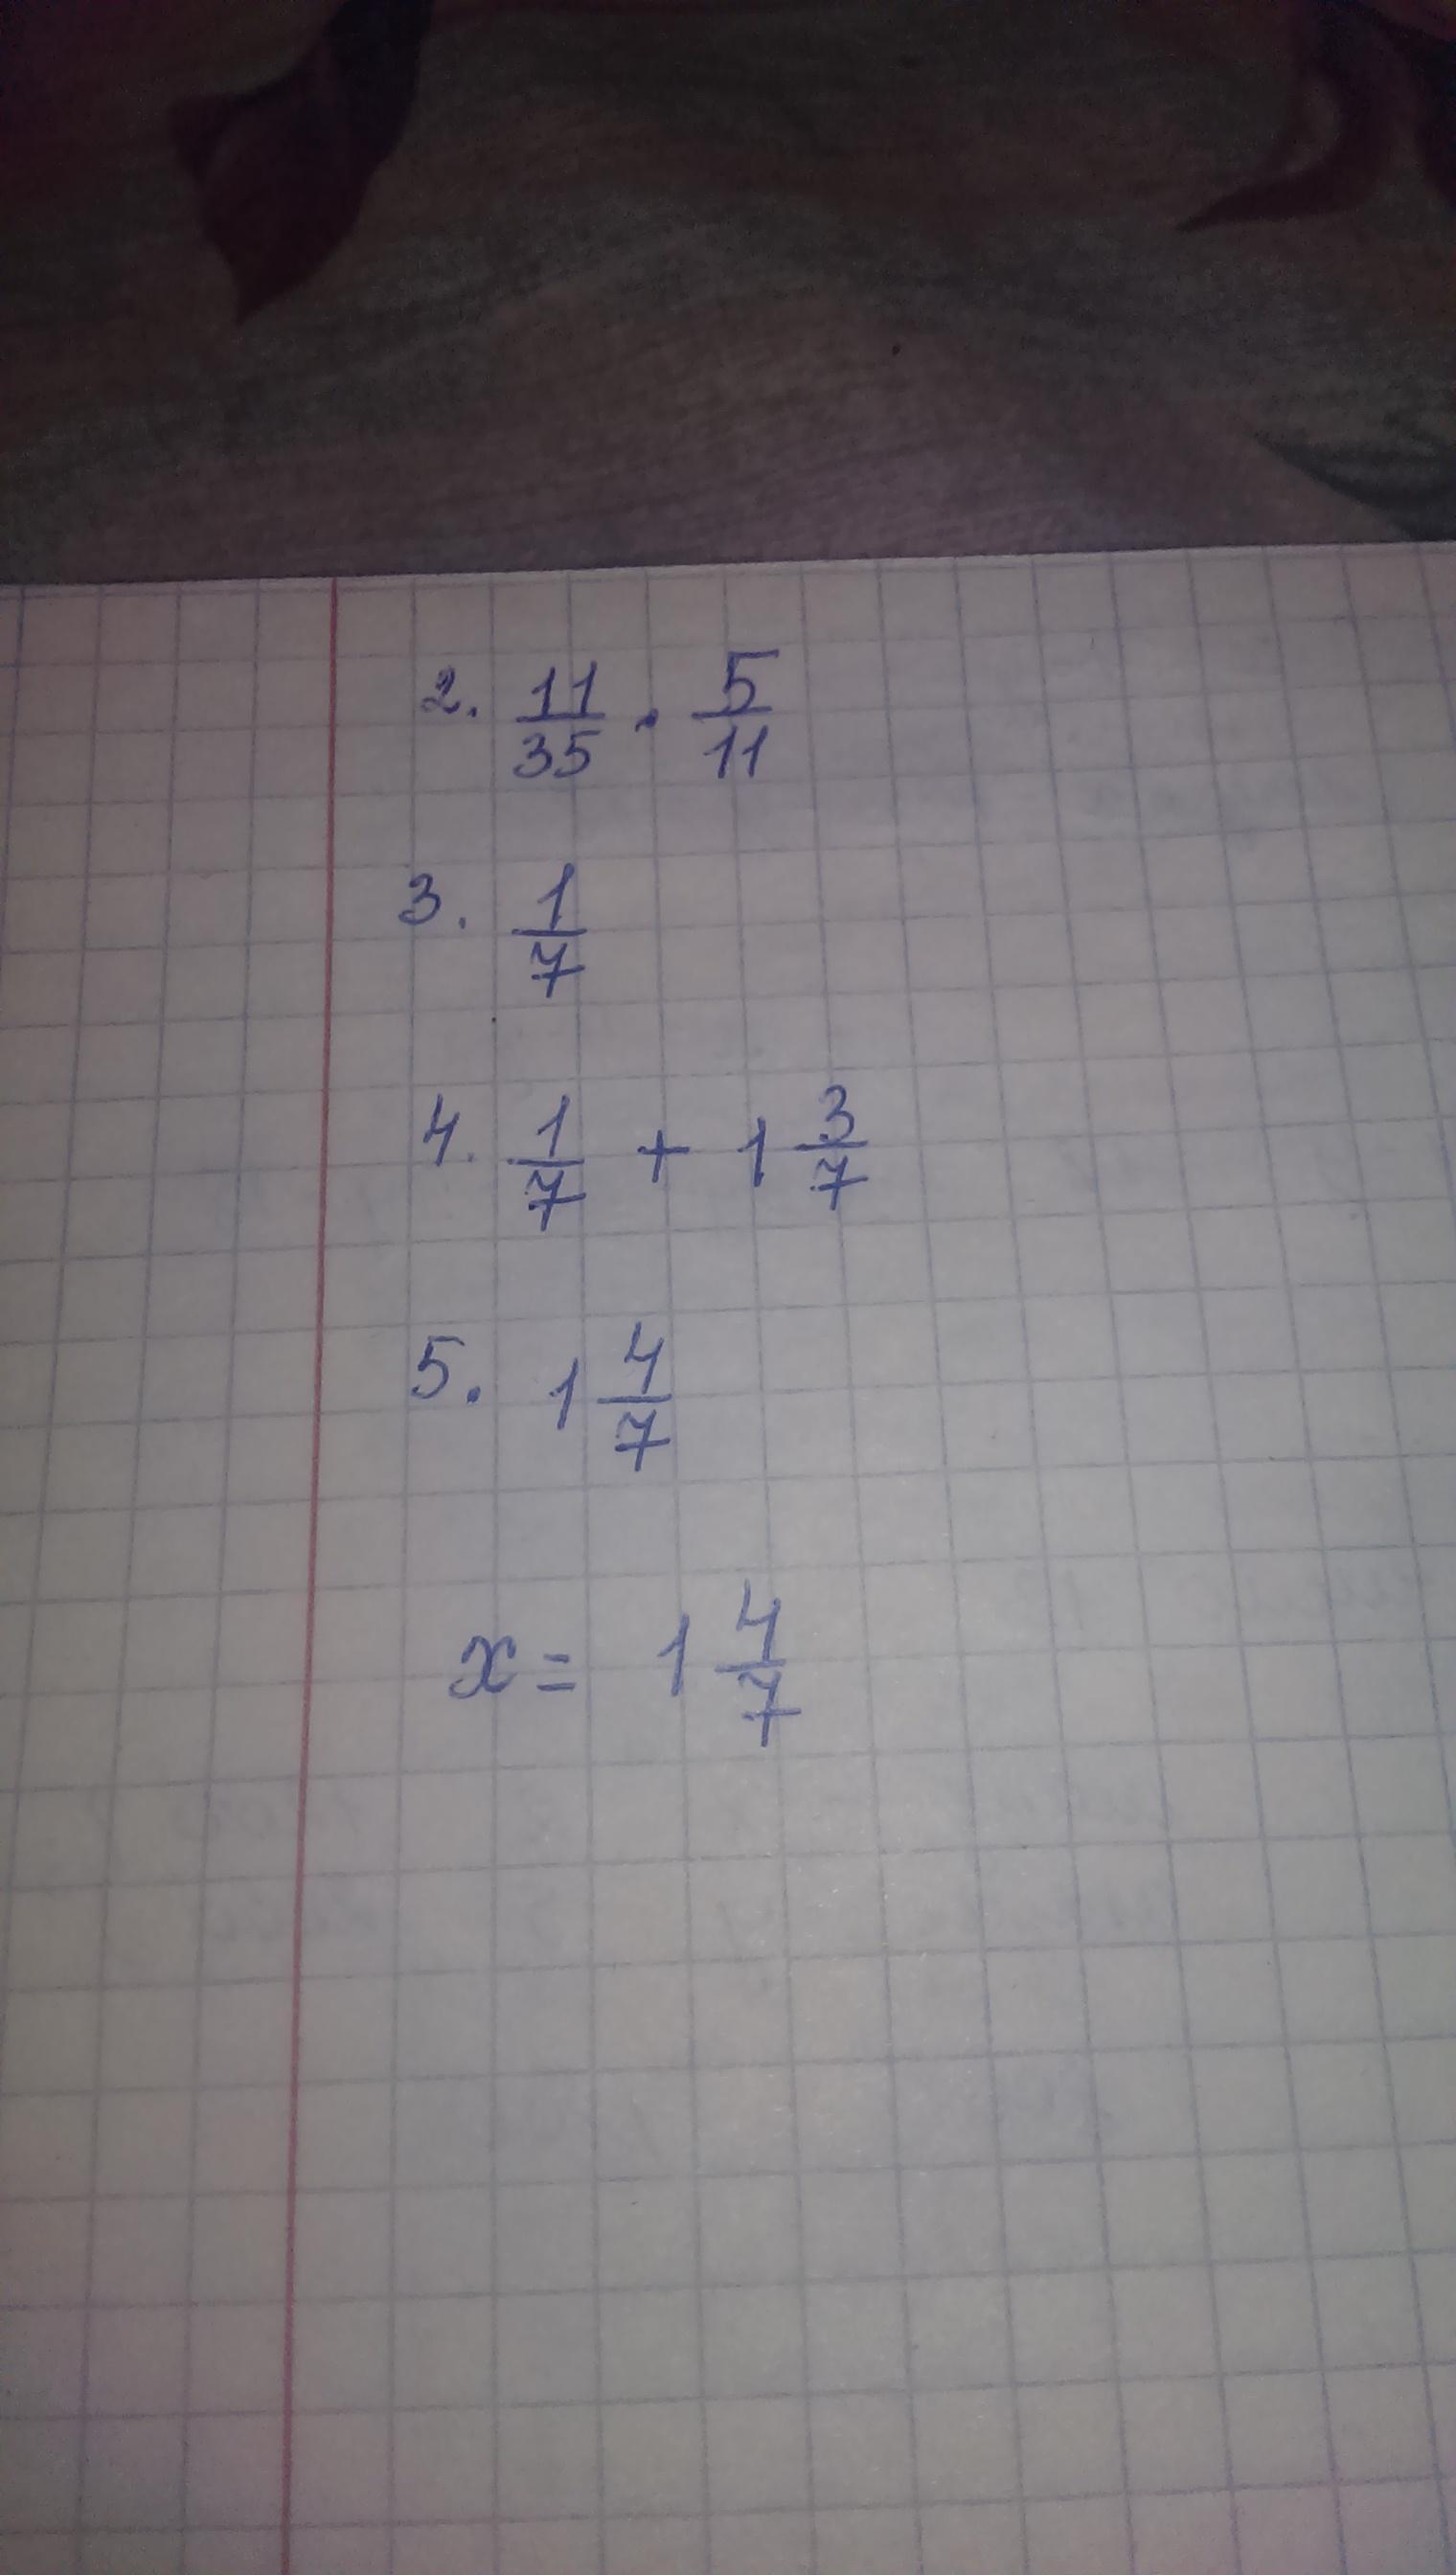 2. 11/35 · 5/11
3. 1/7
4. 1/7 + 1 3/7
5. 1 4/7
x = 1 4/7